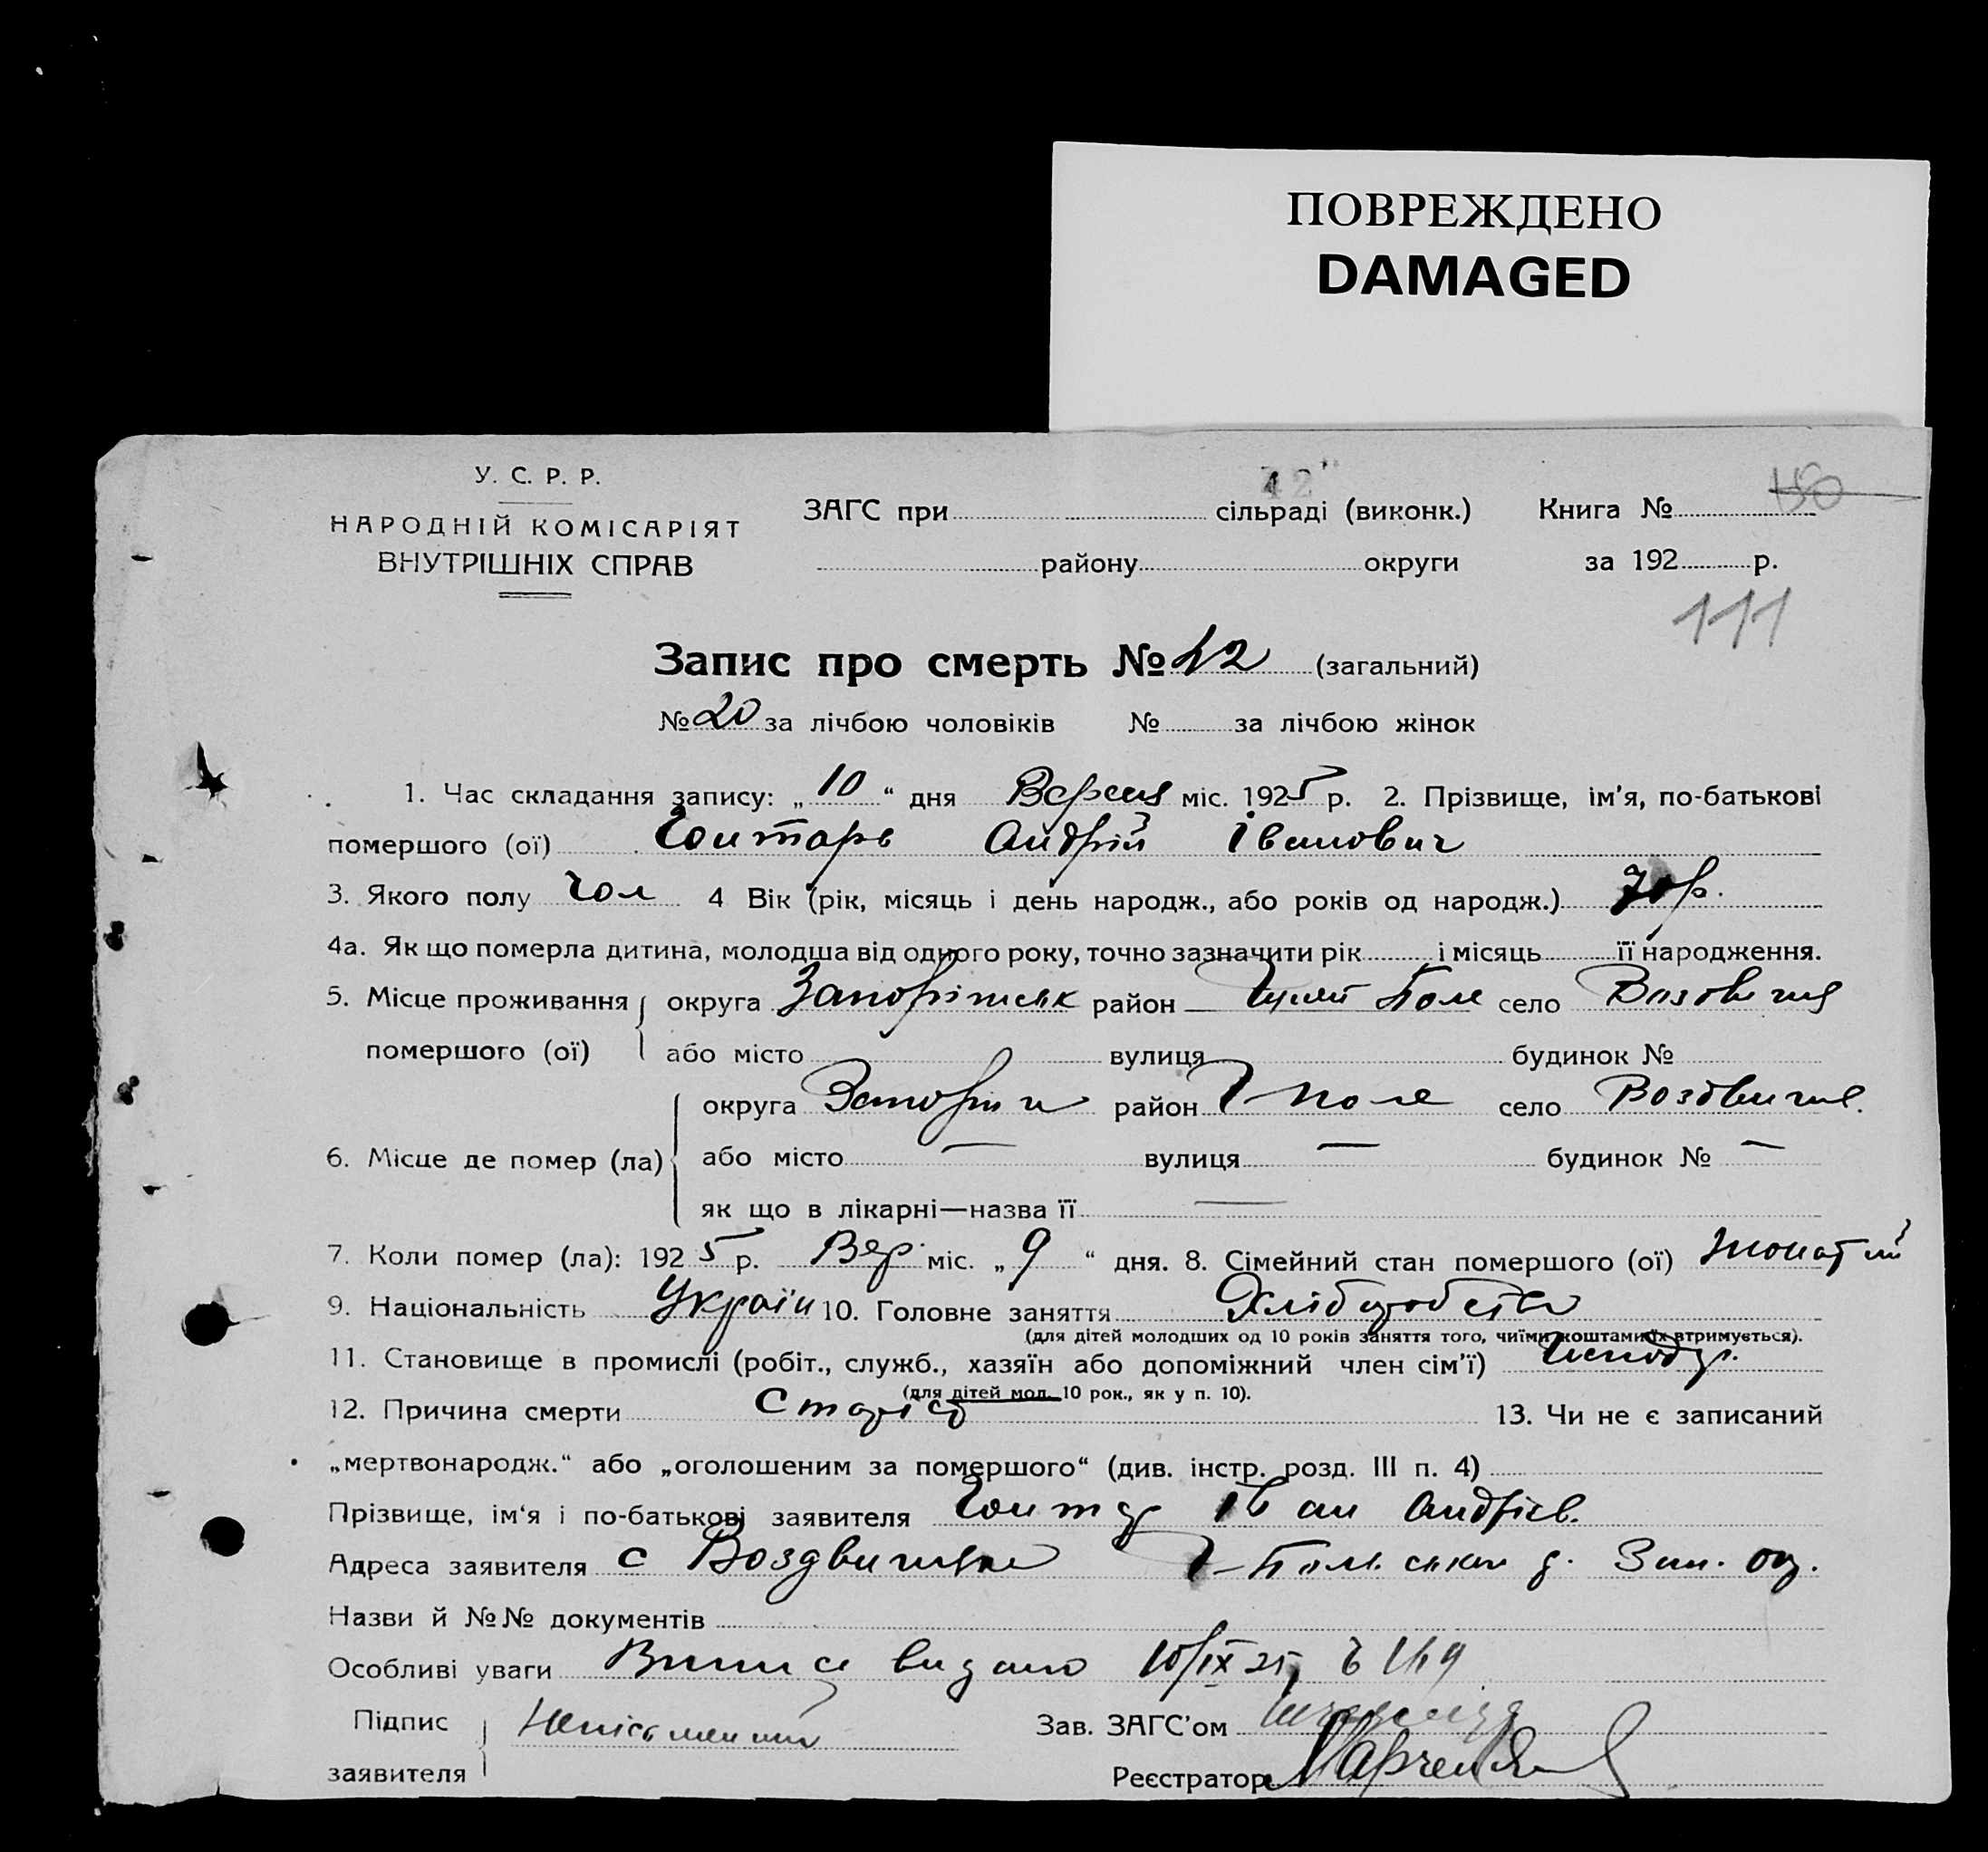 ПОВРЕЖДЕНО
DAMAGED
У. С. Р. Р.
НАРОДНІЙ КОМІСАРІЯТ
ВНУТРІШНІХ СПРАВ
42
ЗАГС при сільраді (виконк.) Книга № 150
району округи за 192 р.
111
Запис про смерть № 42 (загальний)
№ 20 за лічбою чоловіків № за лічбою жінок
1. Час складання запису: „ 10 “ дня Вересня міс. 1925 р. 2. Прізвище, ім'я, по-батькові
помершого (ої) Гонтарь Андрій Іванович
3. Якого полу чол 4 Вік (рік, місяць і день народж., або років од народж.) 70 р.
4а. Як що померла дитина, молодша від одного року, точно зазначити рік і місяць її народження.
5. Місце проживання помершого (ої) округа Запоріжськ район Гуляй Поле село
або місто вулиця будинок №
6. Місце де помер (ла) округа Запоріж район Г Поле село Воздвиж.
або місто — вулиця — будинок № —
як що в лікарні—назва її —
7. Коли помер (ла): 1925 р. Вер. міс. „ 9 “ дня. 8. Сімейний стан помершого (ої) жонатий
9. Національність Україн 10. Головне заняття Хліборобство
(для дітей молодших од 10 років заняття того, чиїми коштами їх втримується).
11. Становище в промислі (робіт., служб., хазяїн або допоміжний член сім'ї)
(для дітей мол. 10 рок., як у п. 10).
12. Причина смерти Старість 13. Чи не є записаний
„мертвонародж.“ або „оголошеним за помершого“ (див. інстр. розд. III п. 4)
Прізвище, ім'я і по-батькові заявителя Гонтар Іван Андрієв.
Адреса заявителя с Воздвижівка Г-Польськ р. Зап. ок.
Назви й №№ документів
Особливі уваги Випись видано 10/IX 25
Підпис заявителя Неписьменний
Зав. ЗАГС'ом
Реєстратор Марченко